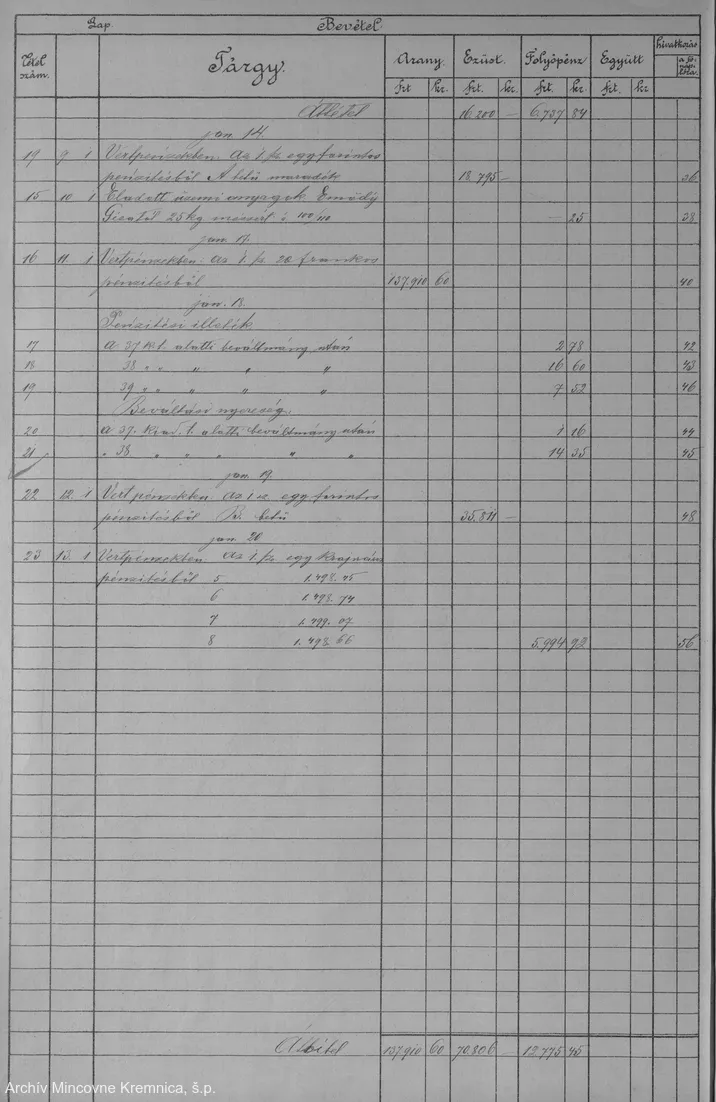 Lap. Bevétel
Tétel szám. Tárgy. Arany. Ezüst. Folyópénz Együtt hivatkozás
frt kr. frt. kr. frt. kr. frt. kr.
Átvitel 16.200 — 6.737 84
jan. 14.
19 9 1 Vertpénzekben. Az I. sz. egy forintos
pénzitésből A betű maradék 18.795 — 36
15 10 1 Eladott üzemi anyagok. Emődy
25 kg — 25 38
jan. 17.
16 11 1 Vertpénzekben. Az I. sz. 20 frankos
pénzitésből 137.910 60 40
jan. 18.
Pénzitési illeték.
17 a 37 kt. alatti beváltmány után 2 78 42
18 38 „ „ „ „ „ 16 60 43
19 39 „ „ „ „ „ 7 52 46
Beváltási nyereség.
20 a 37. kiad. t. alatti beváltmány után 1 16 44
21 „ 38 „ „ „ „ „ 14 35 45
jan. 19.
22 12. 1 Vertpénzekben. Az I sz. egy forintos
pénzitésből B. betű 35.811 — 48
jan. 20
23 13. 1 Vertpénzekben Az I. sz. egy krajczáros
pénzitésből 5 1.498.45
6 1.498.74
7 1.499.07
8 1.498.66 5.994 92 56
Átvitel 137.910 60 70.806 — 12.775 45
Archív Mincovne Kremnica, š.p.